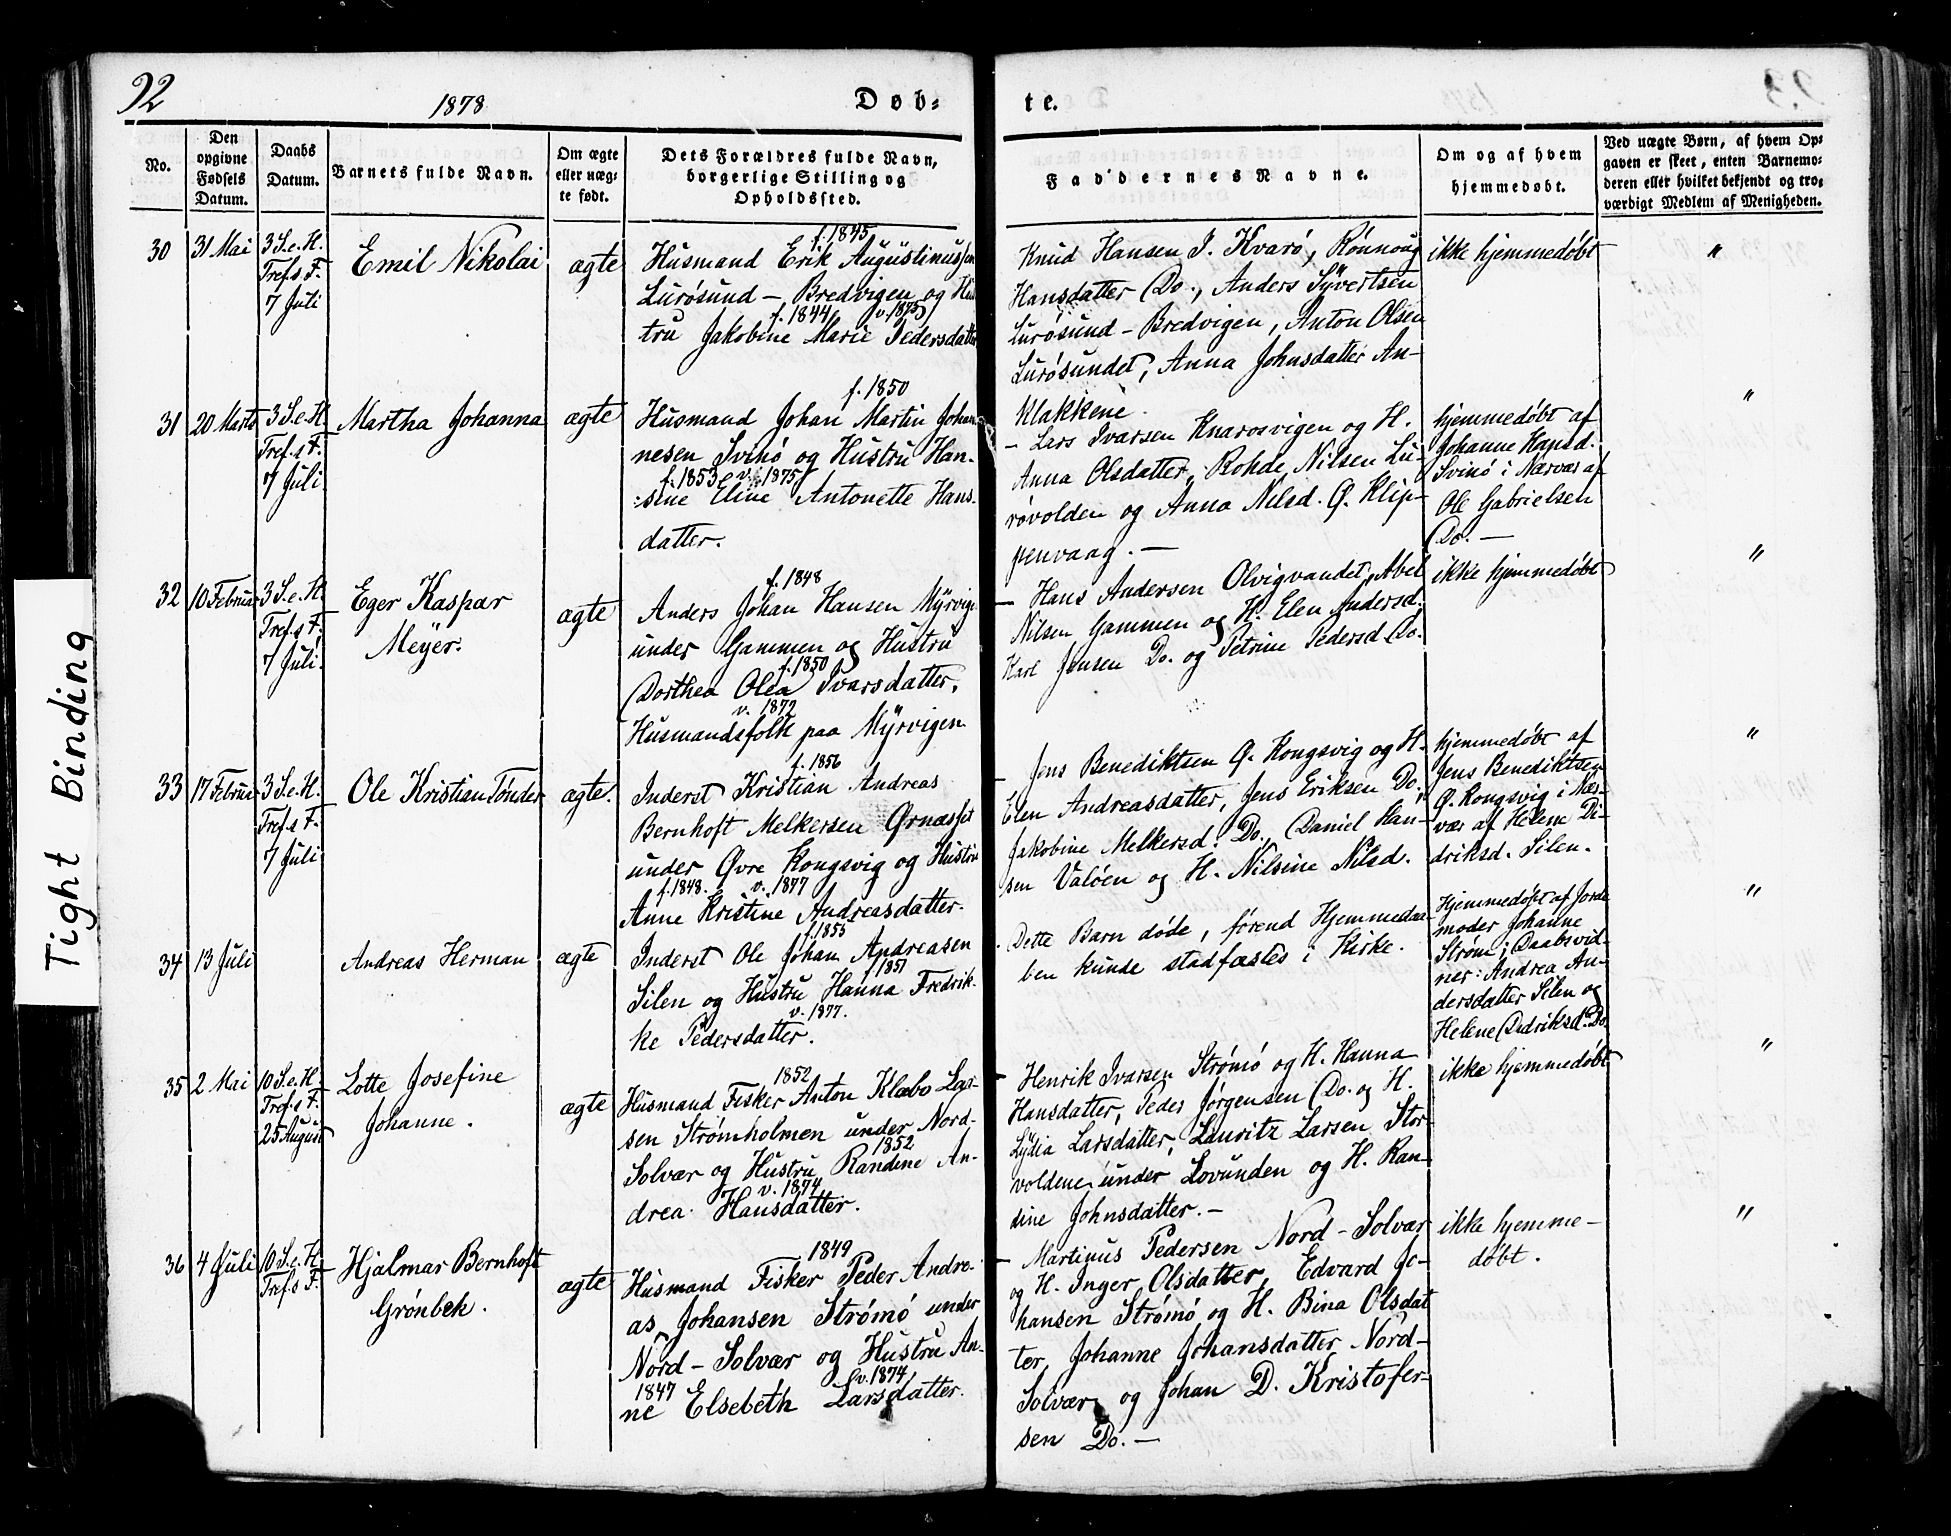 92
1878
Døb-
te.
No.
Den opgivne Fødsels Datum.
Daabs Datum.
Barnets fulde Navn.
Om ægte eller uægte født.
Dets Forældres fulde Navn, borgerlige Stilling og Opholdssted.
Faddernes Navne.
Om og af hvem hjemmedøbt.
Ved uægte Børn, af hvem Opgaven er skeet, enten Barnemoderen eller hvilket bekjendt og troværdigt Medlem af Menigheden.
30
31 Mai
3 S. e. H.
Tref. s F.
7 Juli
Emil Nikolai
ægte
f. 1845
Husmand Erik Augustinussen
Lurøsund - Bredvigen og Hus
f. 1844 v. 1875
tru Jakobine Marie Pedersdatter
Knud Hansen I. Kvarø, Rønnoug
Hansdatter Do., Anders Syvertsen
Lurøsund - Bredvigen, Anton Olsen
Lurøsundet, Anna Johnsdatter An-
klakkene.
ikke hjemmedøbt
"
31
20 Marts
3 S. e. H.
Tref. s F.
7 Juli
Martha Johanna
ægte
f. 1850
Husmand Johan Martin Johan
nesen Svinø og Hustru Han-
f. 1853 v. 1875
sine Eline Antonette Hans
datter.
- Lars Ivarsen Knarosvigen og H.
Anna Olsdatter, Rohde Nilsen Lu-
røvolden og Anna Nilsd. Ø. Klip-
penvaag. -
hjemmedøbt af
Johanne Hansd.
Svinø i Nærvær af
Ole Gabrielsen
Do. -
"
32
10 Februar
3 S. e. H.
Tref. s F.
7 Juli
Eger Kaspar
Meyer.
ægte
f. 1848
Anders Johan Hansen Myrvigen
under Gammen og Hustru
f. 1850
Dorthea Olea Ivarsdatter,
v. 1872
Husmandsfolk paa Myrvigen
- Hans Andersen Olvigvandet, Abel
Nilsen Gammen og H. Elen Andersd.
Karl Jensen Do. og Petrine Pedersd Do.
ikke hjemmedøbt
"
33
17 Februar
3 S. e. H.
Tref. s F.
7 Juli
Ole Kristian Tønder
ægte.
f. 1856
Inderst Kristian Andreas
Bernhoft Melkersen Ørnæsset
under Øvre Kongsvig og Hustru
f. 1848. v. 1877
Anne Kristine Andreasdatter.
- Jens Benediktsen Ø. Kongsvig og H.
Elen Andreasdatter, Jens Eriksen Do.,
Jakobine Melkersd. Do., Daniel Han-
sen Valøen og H. Nilsine Nilsd.
hjemmedøbt af
Jens Benediktsen
Ø. Kongsvig i Nær-
vær af Helene Di-
driksd. Silen.
"
34
13 Juli
Andreas Herman
ægte
f. 1855
Inderst Ole Johan Andreasen
f 1851
Silen og Hustru Hanna Fredrik-
v. 1877.
ke Pedersdatter.
Dette Barn døde, førend Hjemmedaa-
ben kunde stadfæstes i Kirke.
Hjemmedøbt af Jorde
moder Johanne
Strøm; Daabsvid-
ner: Andrea An-
dersdatter Silen og
Helene Didriksd. Do
"
35
2 Mai
10 S. e. H.
Tref. s F.
25 August
Lotte Josefine
Johanne.
ægte
1852
Husmand Fisker Anton Klæbo Lar-
sen Strømholmen under Nord-
1852
Solvær og Hustru Randine An-
v. 1874
drea Hansdatter.
- Henrik Ivarsen Strømø og H. Hanna
Hansdatter, Peder Jørgensen Do. og H.
Lydia Larsdatter, Lauritz Larsen Stor-
voldene under Lovunden og H. Ran-
dine Johnsdatter. -
ikke hjemmedøbt
"
36
4 Juli
10 S. e. H.
Tref. s F.
Hjalmar Bernhoft
Grønbek.
ægte
1849
Husmand Fisker Peder Andre-
as Johansen Strømø under
Nord - Solvær og Hustru An-
1847 v. 1874
ne Elsebeth Larsdatter.
- Martinus Pedersen Nord - Solvær
og H. Inger Olsdatter, Edvard Jo-
hansen Strømø og H. Bina Olsdat
ter, Johanne Johansdatter Nord-
Solvær og Johan D. Kristofer-
sen Do. -
ikke hjemme-
døbt.
"
Tight Binding